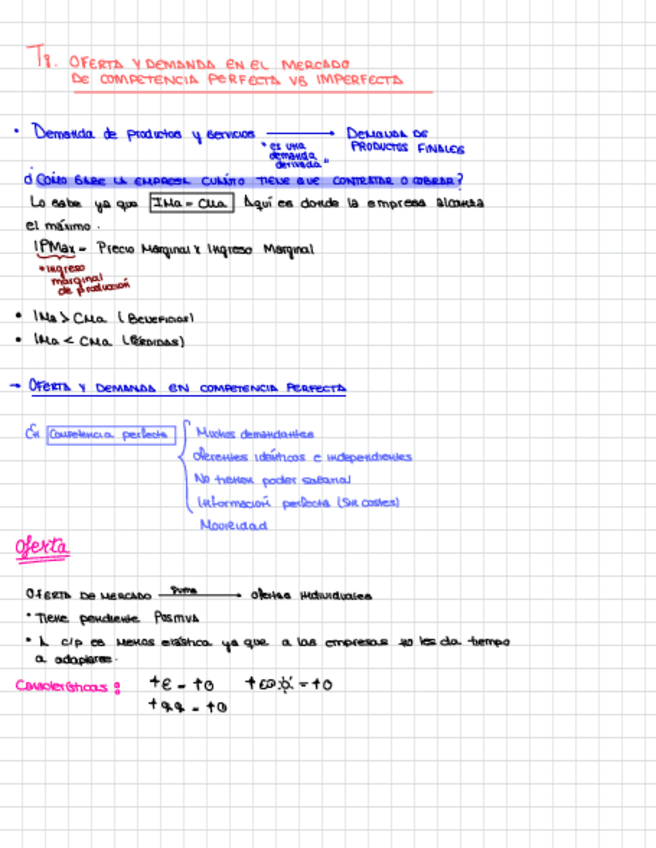 T8. OFERTA Y DEMANDA EN EL MERCADO
DE COMPETENCIA PERFECTA VS IMPERFECTA
• Demanda de productos y servicios → DEMANDA DE
PRODUCTOS FINALES
"es una
demanda
derivada"
¿CÓMO SABE LA EMPRESA CUÁNTO TIENE QUE CONTRATAR O COBRAR?
Lo sabe ya que IMa = CMa Aquí es donde la empresa alcanza
el máximo.
IPMax = Precio Marginal x Ingreso Marginal
• Ingreso
marginal
de producción
• IMa > CMa (BENEFICIOS)
• IMa < CMa (PÉRDIDAS)
→ OFERTA Y DEMANDA EN COMPETENCIA PERFECTA
En Competencia perfecta
Muchos demandantes
oferentes idénticos e independientes
No tienen poder salarial
Información perfecta (Sin costes)
Movilidad
Oferta
OFERTA DE MERCADO suma → ofertas individuales
• Tiene pendiente POSITIVA
• A c/p es menos elástica ya que a las empresas no les da tiempo
a adaptarse.
Características: